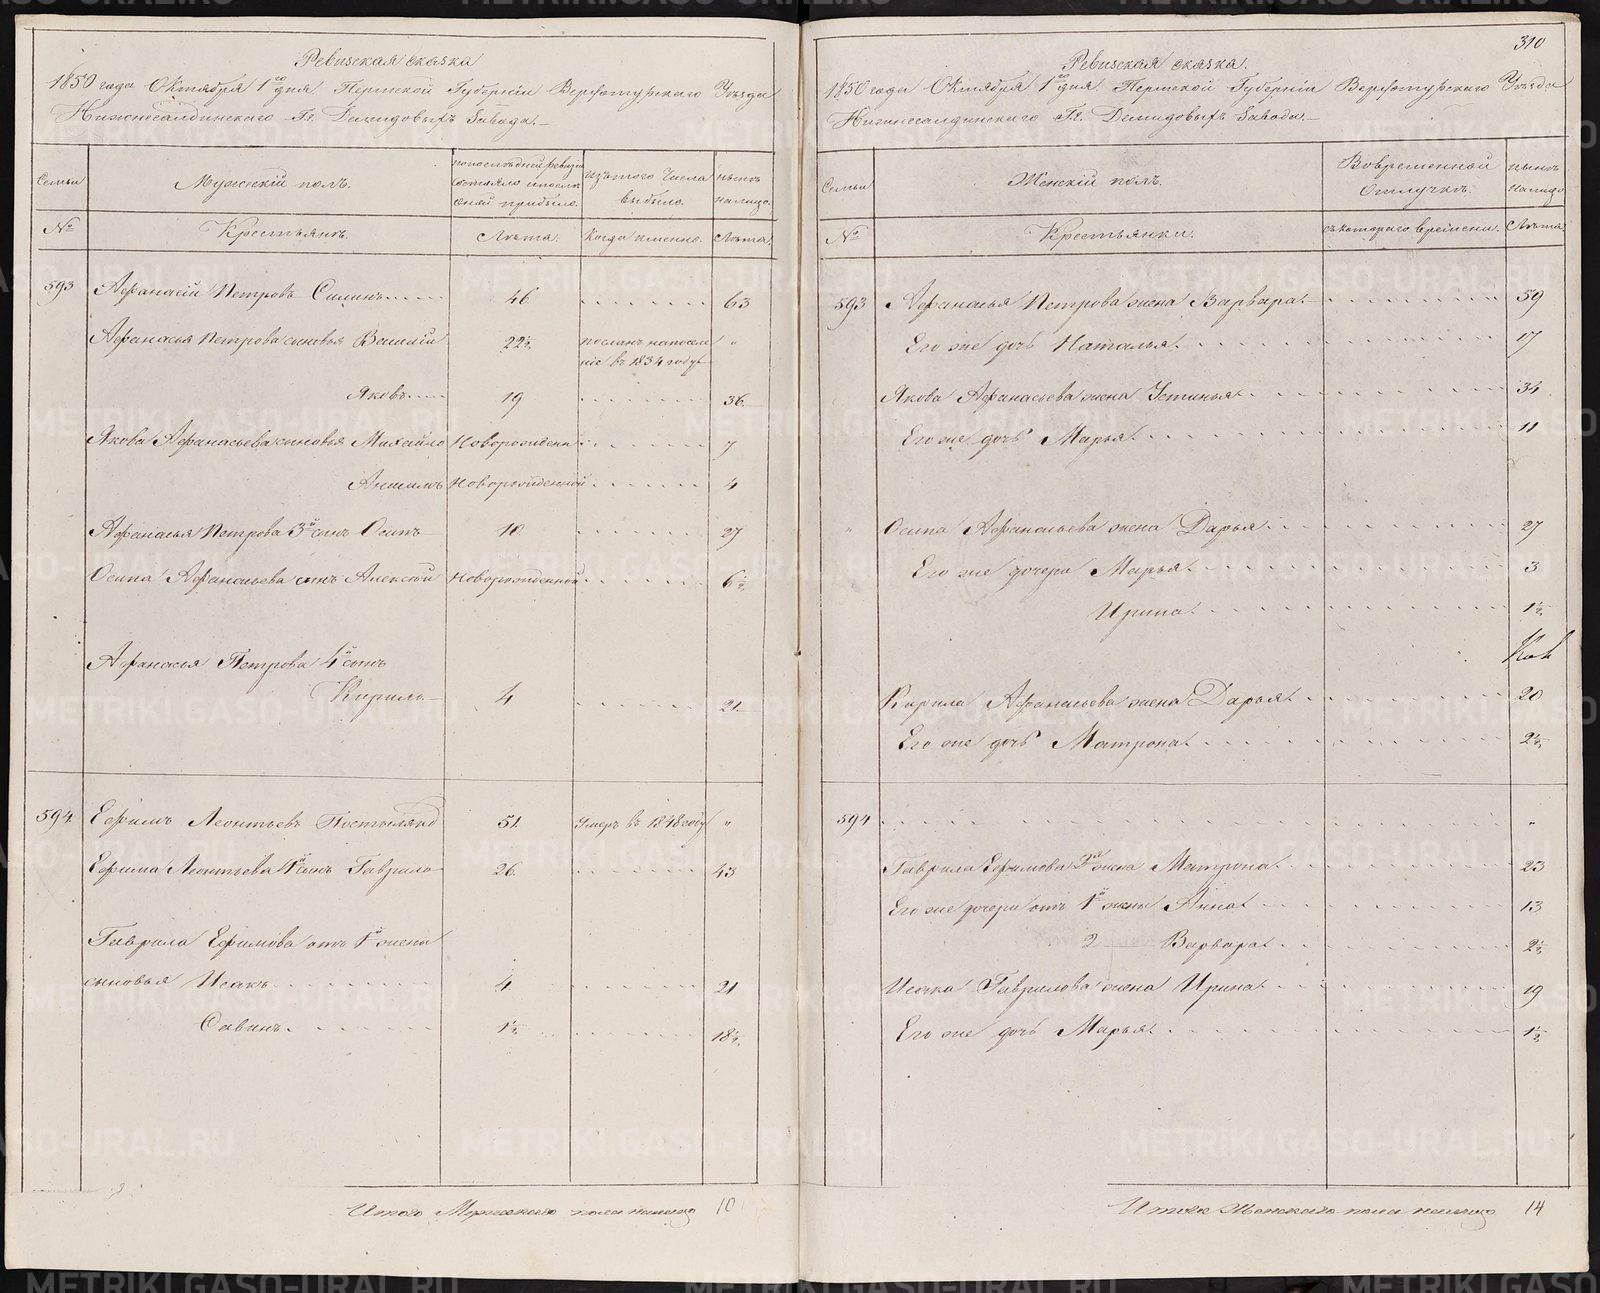 Ревизская сказка
1850 года Октября 1го дня Пермской Губернiи Верхотурскаго Уѣзда
Нижнесалдинскаго Гг. Демидовыхъ Завода.
Семьи
Мужескiй полъ.
По последней ревизiи состояло и после оной прибыло.
Изъ того числа выбыло.
Нынѣ на лицо.
№
Крестьянъ.
Лѣта.
Когда именно.
Лѣта.
593 Афанасiй Петровъ Силинъ 46 63
Афанасья Петрова сыновья Василiй 22½ посланъ на поселе "
нiе въ 1834 году
Яковъ 19 36.
Якова Афанасьева сыновья Михайло Новорожденн 7
Новорожденной 4
Афанасья Петрова 3й сынъ Осипъ 10. 27
Осипа Афанасьева сынъ Алексей Новорожденной 6½
Афанасья Петрова 4й сынъ
Кирило 4 21.
594 Ефимъ Леонтьевъ 51. Умеръ въ 1848 году "
Ефима Леонтьева 1й сынъ Гаврило 26. 43
Гаврила Ефимова отъ 1й жены
сыновья Исакъ 4. 21
Савинъ. 1½ 18½
Итого Мужескаго пола налицо 10
310
Ревизская сказка.
1850 года Октября 1го дня Пермской Губернiи Верхотурскаго Уѣзда
Нижнесалдинскаго Гг. Демидовыхъ Завода.
Семьи
Женскiй полъ.
Во временной отлучкѣ.
Нынѣ налицо
№
Крестьянки.
съ котораго времени.
Лѣта
593 Афанасья Петрова жена Варвара 59
Его же дочь Наталья. 17
Якова Афанасьева жена Устинья 34
Его же дочь Марья. 11
Осипа Афанасьева жена Дарья 27
Его же дочери Марья. 3
Ирина. 1½
Кирила Афанасьева жена Дарья. 20
Его же дочь Матрона. 2½
594 "
Гаврила Ефимова 2й жена Матрона. 23
Его же дочери отъ 1й жены Анна 13
2 Варвара. 2½
Исака Гаврилова жена Ирина. 19
Его же дочь Марья. 1½
Итого Женскаго пола налицо 14
METRIKI.GASO-URAL.RU